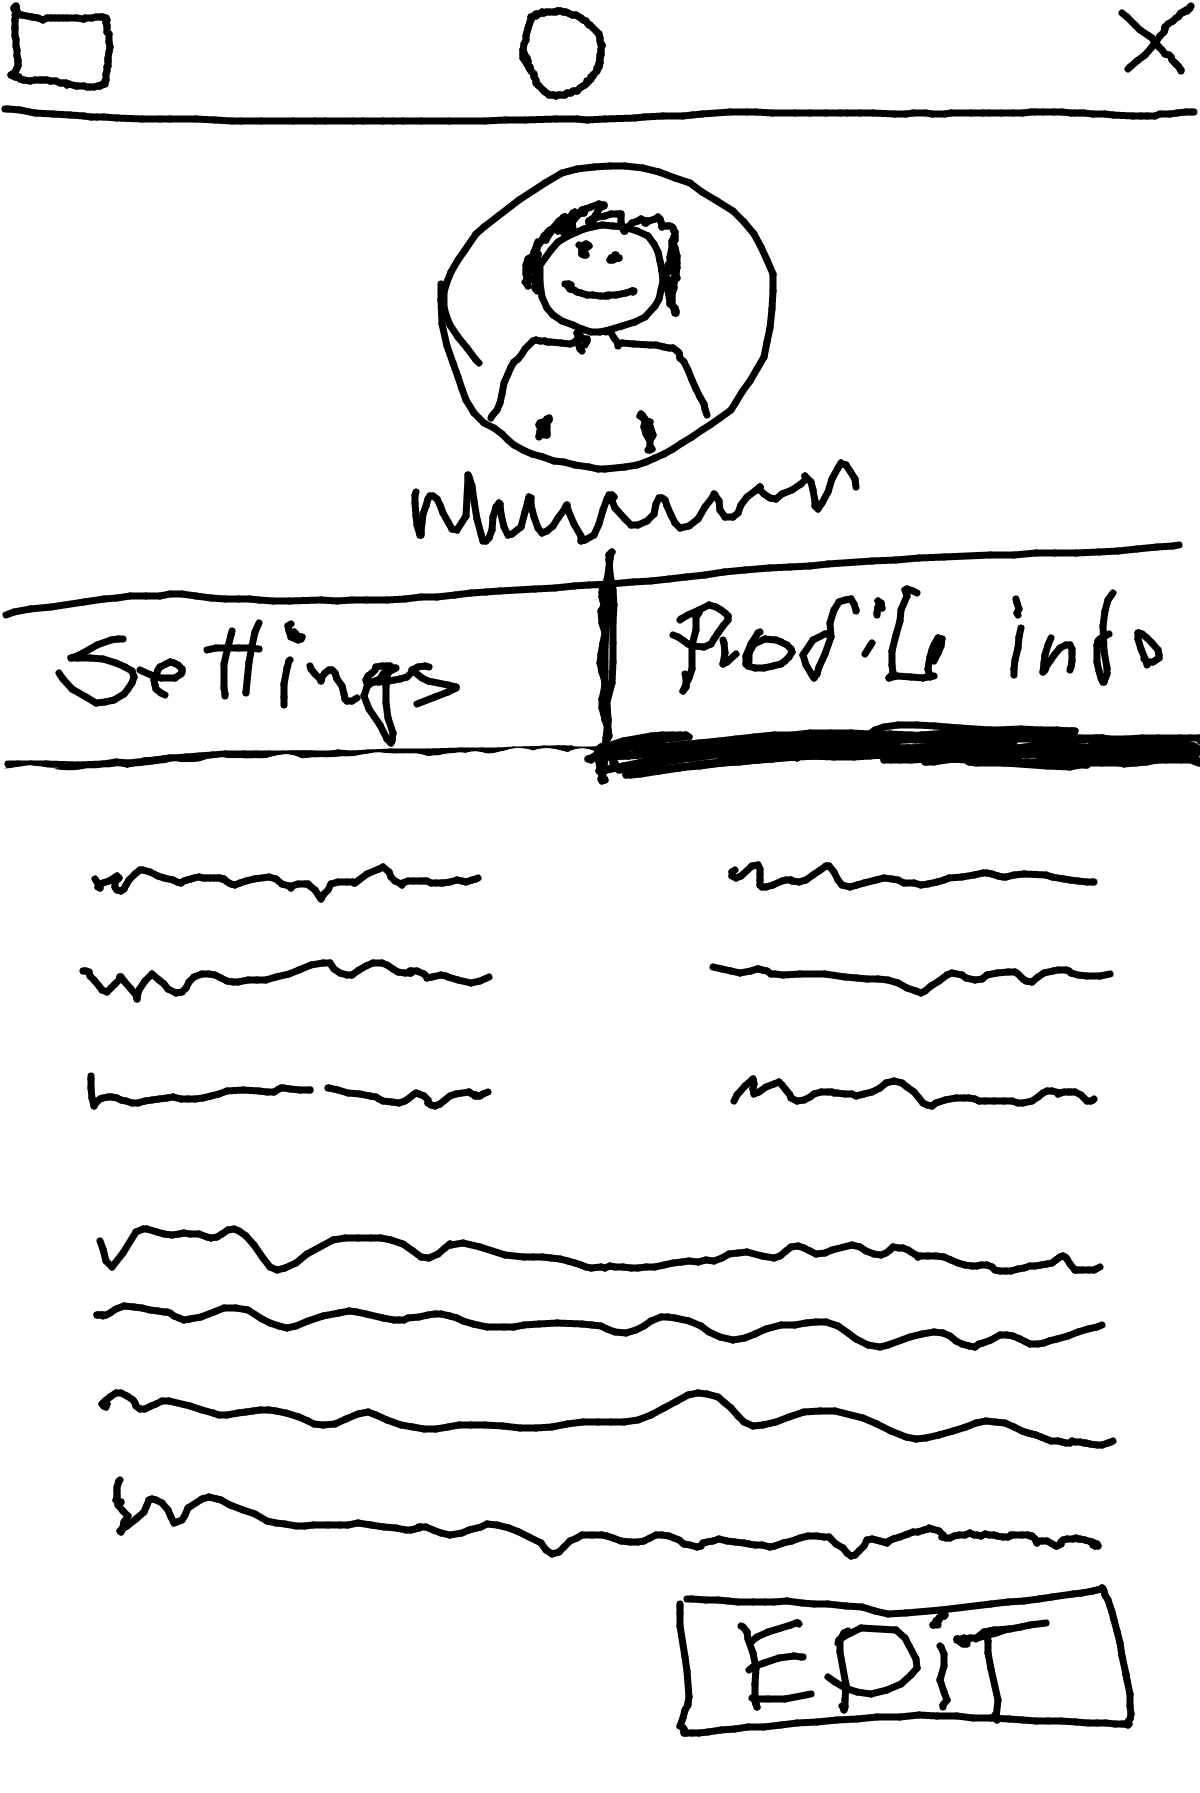 Settings
Profile info
EDiT